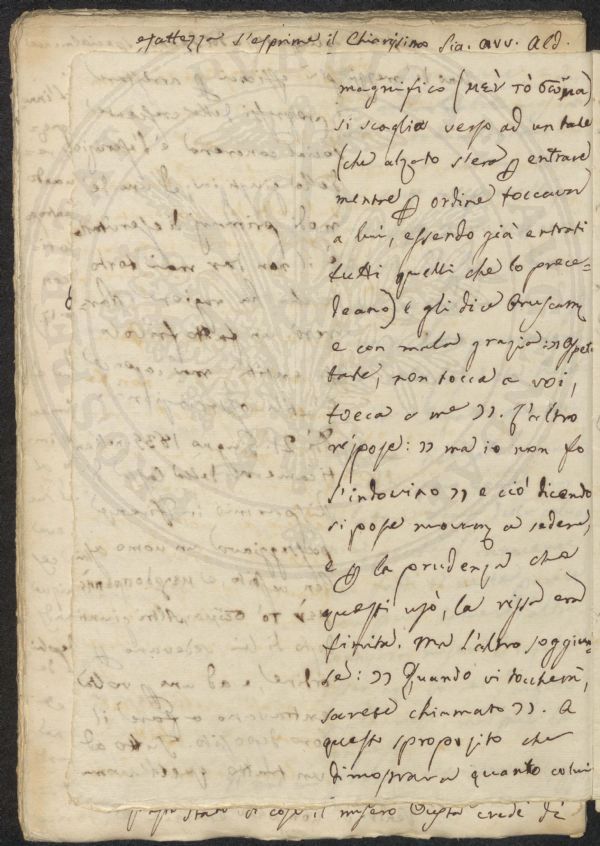 esattezza s'esprime il Chiarissimo Sia. avv. Ald.
magnifico (μὲν τὸ σῶμα)
si scaglia verso ad un tale
(che alzato s'era ꝑ entrare
mentre ꝑ ordine toccava
a lui, essendo già entrati
tutti quelli che lo prece-
deano) e gli dice bruscam
e con mala grazia: » aspet
tate, non tocca a voi,
tocca a me ». L'altro
rispose: » ma io non fo
l'indovino » e ciò dicendo
si pose nuovam a sedere,
e ꝑ la prudenza che
questi usò, la rissa era
finita. Ma l'altro soggiun-
se: » Quando vi toccherà,
sarete chiamato ». A
questo sproposito che
dimostrava quanto colui
di cose il misero crede di